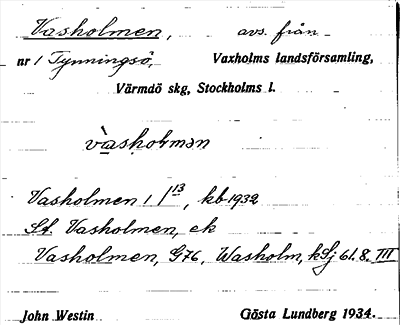 Vasholmen, avs. från
nr 1 Tynningsö, Vaxholms landsförsamling,
Värmdö skg, Stockholms l.
vàsholmən
Vasholmen 1 f 13, kb 1932
St. Vasholmen, ek
Vasholmen, G76, Washolm, kSj 61.8. III
John Westin Gösta Lundberg 1934.